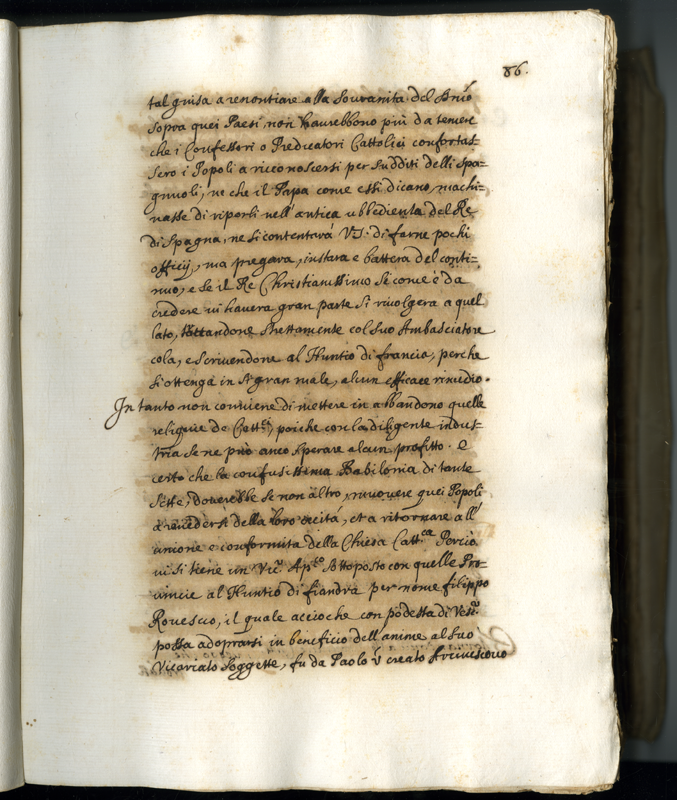 86.
tal guisa a renontiare alla Sovranità del Bnio
sopra quei Paesi non haurebbono più da temere
che i Confessori o Predicatori Cattolici confortas-
sero i Popoli a riconoscersi per sudditi delli Spa-
gnuoli, ne che il Papa come essi dicano, machi-
nasse di riporli nell'antica ubbedienza del Re
di Spagna, ne si contentarà V.S. di farne pochi
officij, ma pregara, instara e battera del conti-
nuo, e se il Re Christianissimo Si come è da
credere vi havera gran parte Si rivolgera a quel
lato, trattandone strettamente col suo Ambasciatore
cola, e scrivendone al Nuntio di francia, perche
si ottenga in sì gran male, alcun efficace rimedio.
In tanto non conviene di mettere in abbandono quelle
reliquie de Catt.ci, poiche con la diligente indus-
tria se ne può anco sperare alcun profitto. E
certo che la confusissima Babilonia di tante
Sette, doverebbe se non altro, muovere quei Popoli
a ravedersi della loro cecità, et a ritornare all'
unione e conformità della Chiesa Catt.ca Perciò
vi si tiene un Vic.o Ap.co sottoposto con quelle Pro-
vincie al Nuntio di fiandra per nome filippo
Rovesco, il quale acciochè con podestà di Vesc.
possa adoprarsi in beneficio dell'anime al suo
Vicariato Soggette, fu da Paolo V creato Arcivescovo